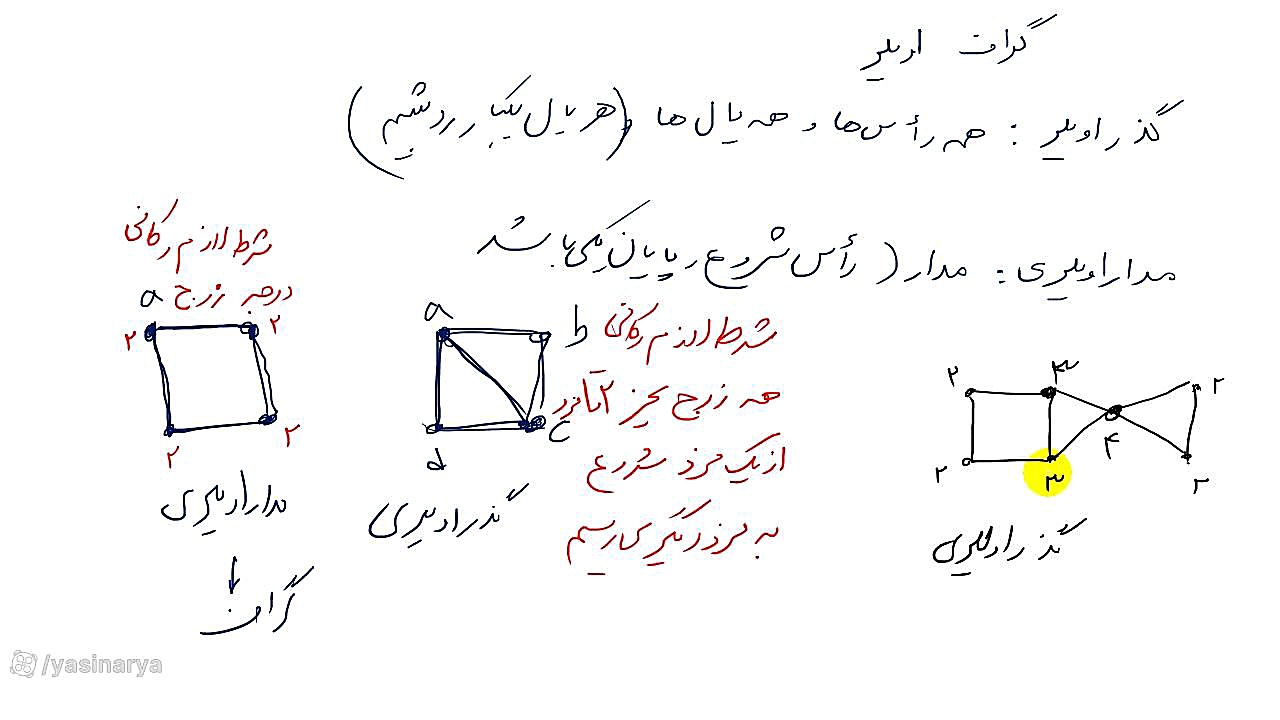 گراف اویلر
گذر اویلر : همه رأس‌ها و همه یال‌ها (هر یال یکبار رد شیم)
مدار اویلری : مدار ( رأس شروع و پایان یکی باشد
شرط لازم و کافی
درجه زوج
a
۲
۲
۲
۲
مدار اویلری
گراف
a
b
c
d
گذر اویلری
شرط لازم و کافی
همه زوج بجز ۲ تا فرد
از یک فرد شروع
به فرد دیگری رسیم
۲
۳
۲
۲
۳
۴
۲
گذر اویلری
/yasinarya